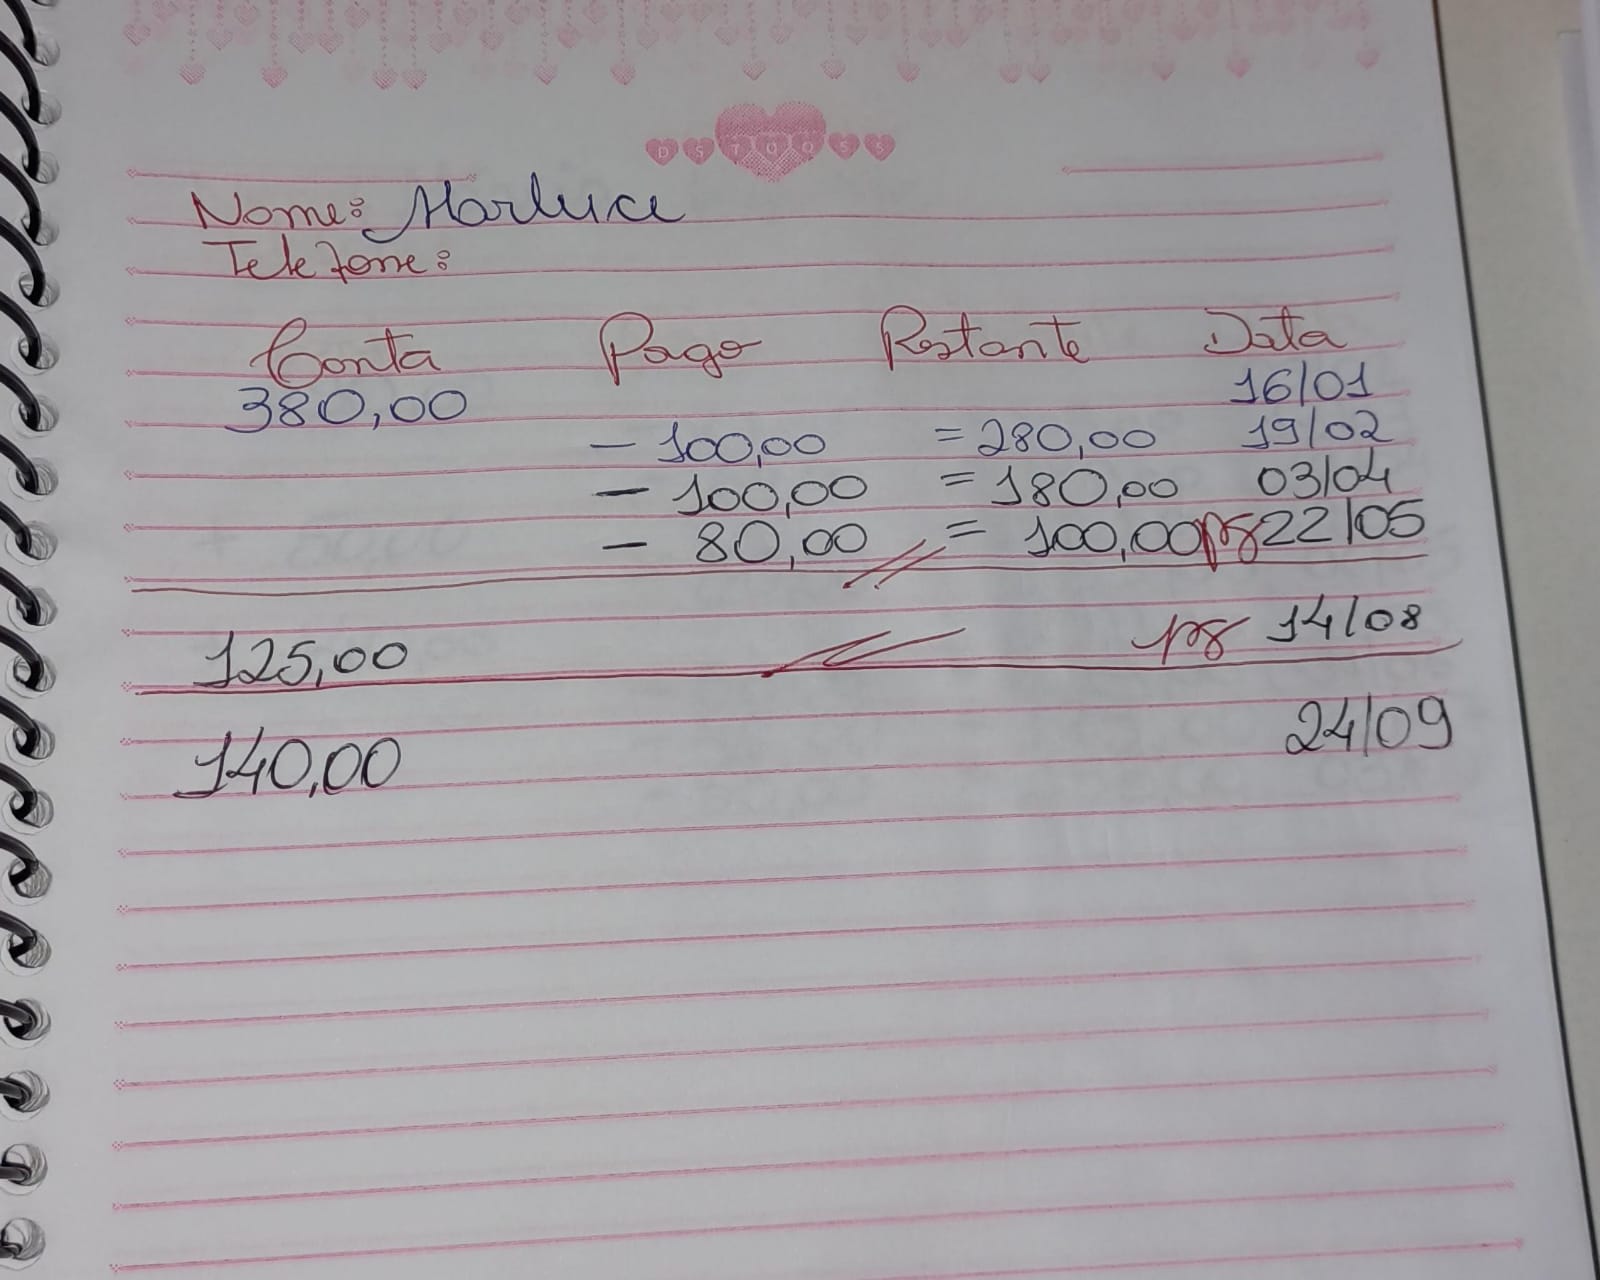 D S T Q Q S S
Nome: Marluce
Telefone:
Conta Pago Restante Data
380,00 16/01
- 100,00 = 280,00 19/02
- 100,00 = 180,00 03/04
- 80,00 = 100,00 pg 22/05
125,00 pg 14/08
140,00 24/09